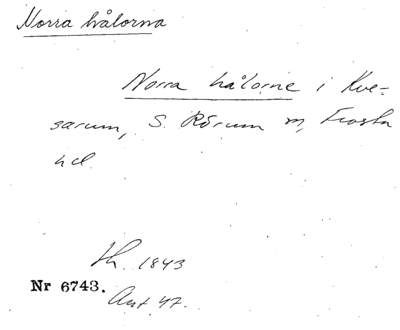 Norra hålorna
Norra hålorne i Kve-
sarum, S. Rörum sn, Frosta
hd.
Lh. 1843
Nr 6743.
Ant. 47.